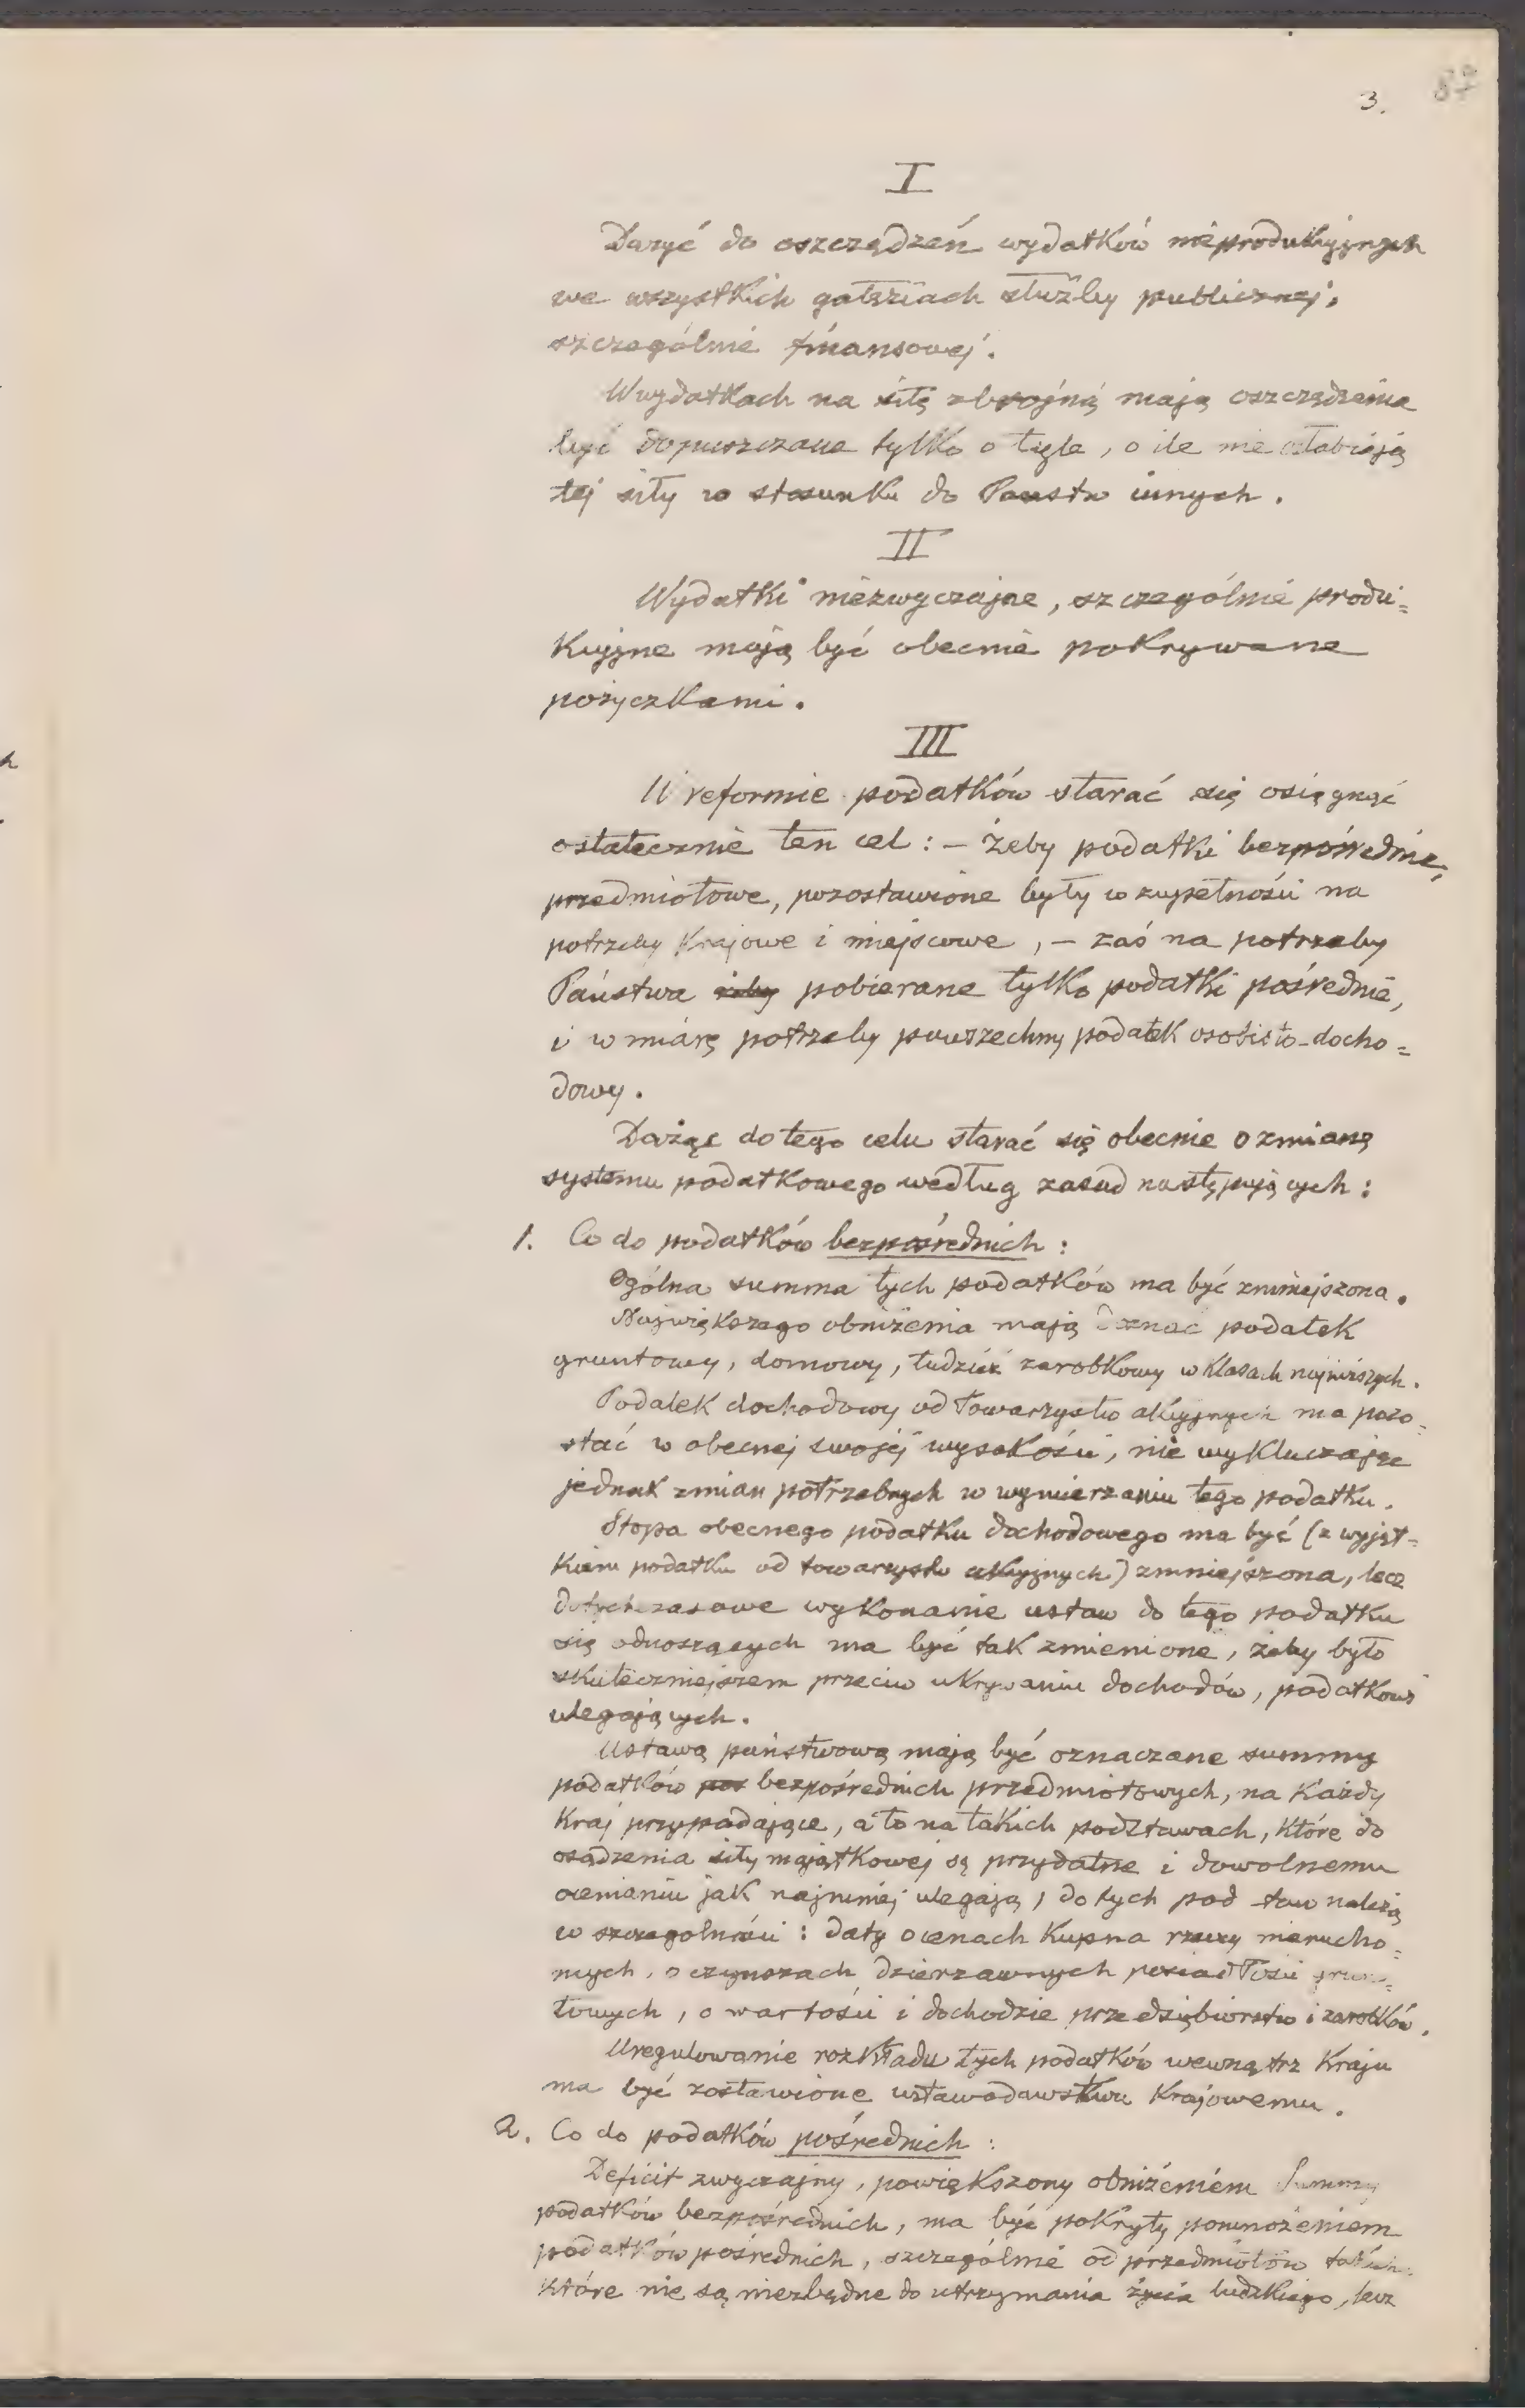 3. 87
I
Dążyć do oszczędzeń wydatków nieprodukcyjnych
we wszystkich gałęziach służby publicznej,
szczególnie finansowej.
W wydatkach na siłę zbrojną mają oszczędzenia
być dopuszczane tylko o tyle, o ile nie osłabiają
tej siły w stosunku do Państw innych.
II
Wydatki niezwyczajne, szczególnie produ=
kcyjne mają być obecnie pokrywane
pożyczkami.
III
W reformie podatków starać się osięgnąć
ostatecznie ten cel: – żeby podatki bezpośrednie,
przedmiotowe, pozostawione były w zupełności na
potrzeby krajowe i miejscowe, – zaś na potrzeby
Państwa żeby pobierane tylko podatki pośrednie,
i w miarę potrzeby powszechny podatek osobisto-docho=
dowy.
Dążąc do tego celu starać się obecnie o zmianę
systemu podatkowego według zasad następujących:
1. Co do podatków bezpośrednich:
Ogólna summa tych podatków ma być zmniejszona.
Największego obniżenia mają doznać podatek
gruntowy, domowy, tudzież zarobkowy w klasach najniższych.
Podatek dochodowy od Towarzystw akcyjnych ma pozo=
stać w obecnej swojej wysokości, nie wykluczając
jednak zmian potrzebnych w wymierzaniu tego podatku.
Stopa obecnego podatku dochodowego ma być (z wyjąt=
kiem podatku od towarzystw akcyjnych) zmniejszona, lecz
dotychczasowe wykonanie ustaw do tego podatku
się odnoszących ma być tak zmienione, żeby było
skuteczniejszem przeciw ukrywaniu dochodów, podatkowi
ulegających.
Ustawą państwową mają być oznaczane summy
podatków pos bezpośrednich przedmiotowych, na każdy
kraj przypadające, a to na takich podstawach, które do
osądzenia siły majątkowej są przydatne i dowolnemu
ocenianiu jak najmniej ulegają, do tych pod taw należą
w szczególności: daty o cenach kupna rzeczy nierucho=
mych, o czynszach dzierzawnych posiadłości grun=
towych, o wartości i dochodzie przedsiębiorstw i zarobków.
Uregulowanie rozkładu tych podatków wewnątrz kraju
ma być zostawione ustawodawstwu krajowemu.
2. Co do podatków pośrednich:
Deficit zwyczajny, powiększony obniżeniem Summy
podatków bezpośrednich, ma być pokryty pomnożeniem
podatków pośrednich, szczególnie od przedmiotów takich,
które nie są niezbędne do utrzymania życia ludzkiego, lecz